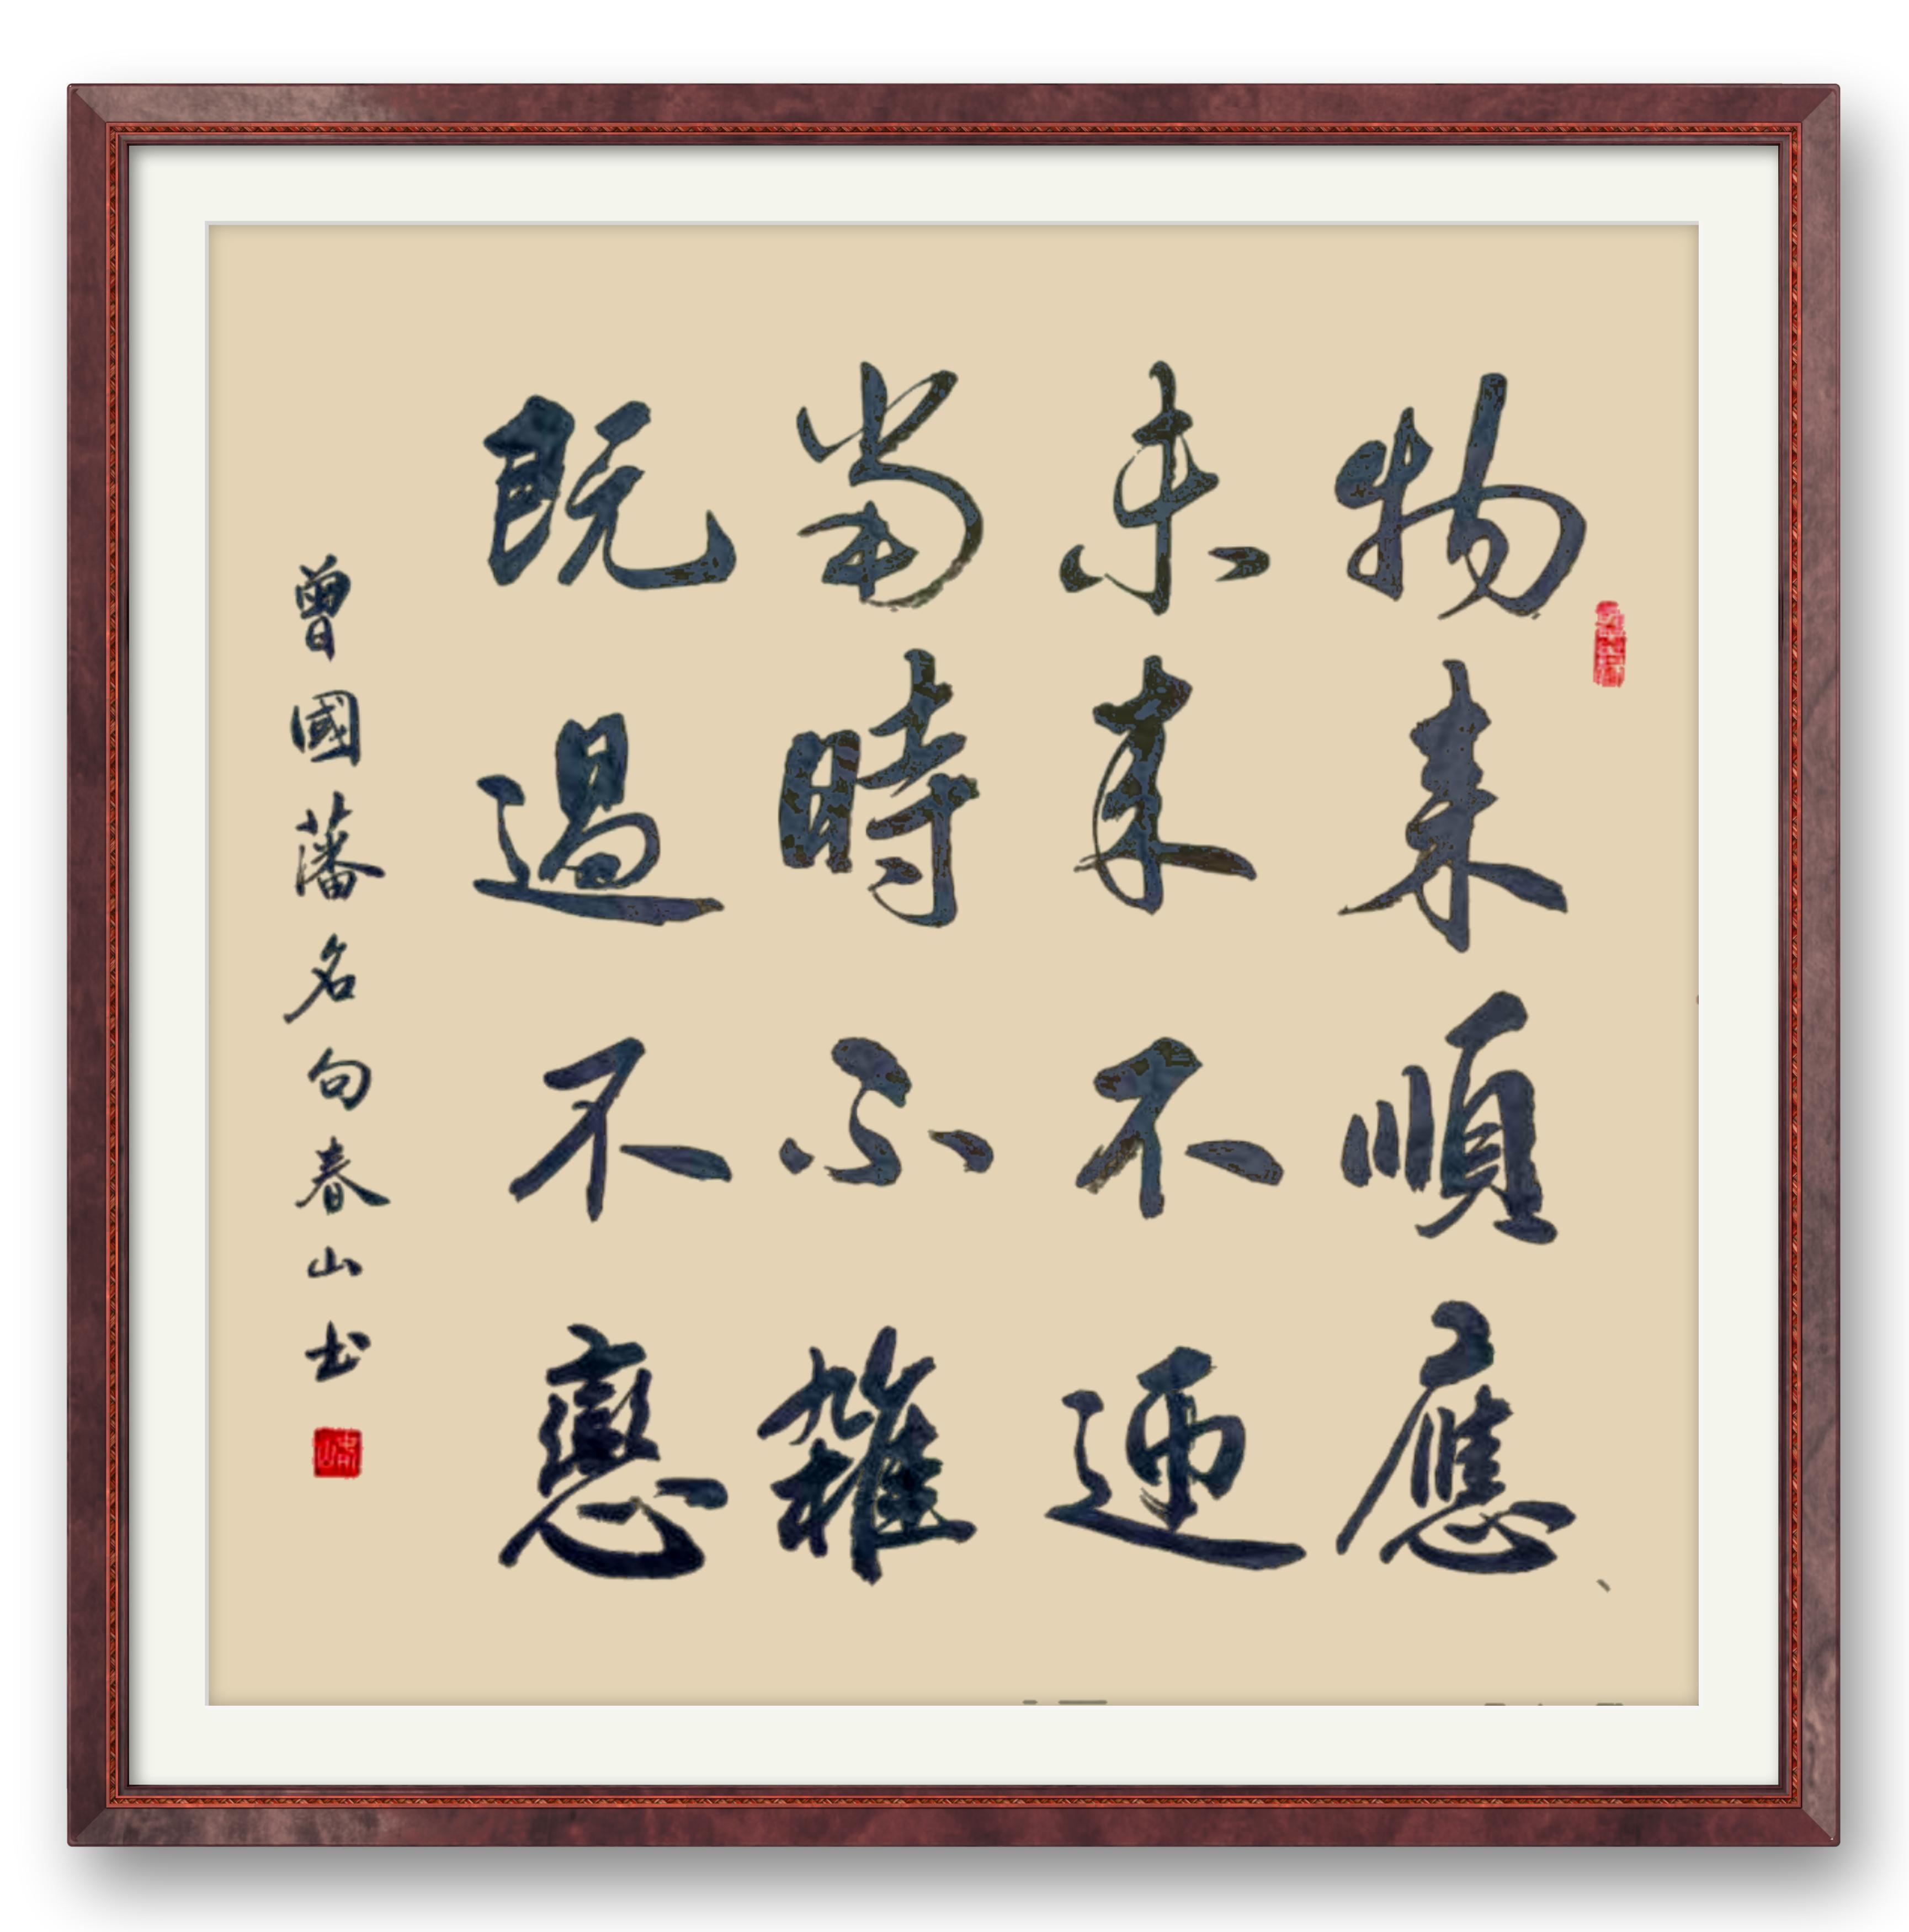 物来順應
未来不迎
當時不雜
既過不戀
曾國藩名句春山书